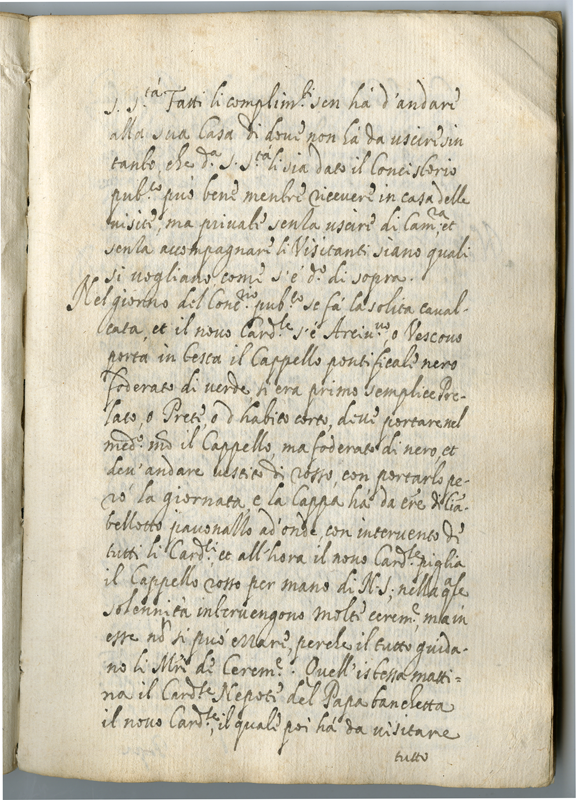 S. S.tà Fatti li complim.ti sen hà d'andare
alla sua Casa di dove non hà da uscire sin
tanto, che d.a S. S.tà li sia dato il Concistorio
pub.co può bene mentre ricevere in casa delle
visite, ma private senza uscire di Cam.ra, et
senza accompagnare li Visitanti siano quali
si vogliano come s'é d.o di sopra.
Nel giorno del Conc.rio pub.co se fà la solita caval-
cata, et il novo Card.le s'é Arciv.vo, o Vescovo
porta in testa il Cappello pontificale nero
foderato di verde si era primo semplice Pre-
lato, o Prete o d'habito corto, deve portare nel
med.o mo il Cappello, ma foderato di nero, et
dev'andare vestito di rosso, con portarlo pe-
rò la giornata, e la Cappa hà da ere di Cia-
bellotto pavonazzo ad'onde con intervento di
tutti li Card.li, et all'hora il novo Card.le piglia
il Cappello rosso per mano di N. S. nella qle
solennità intervengono molte cerem.e, ma in
esse nō si può errare, perche il tutto guida-
no li Mri de Cerem.e. Quell'istessa matti=
na il Card.le Nepote del Papa banchetta
il novo Card.le, il quale poi hà da visitare
tutto